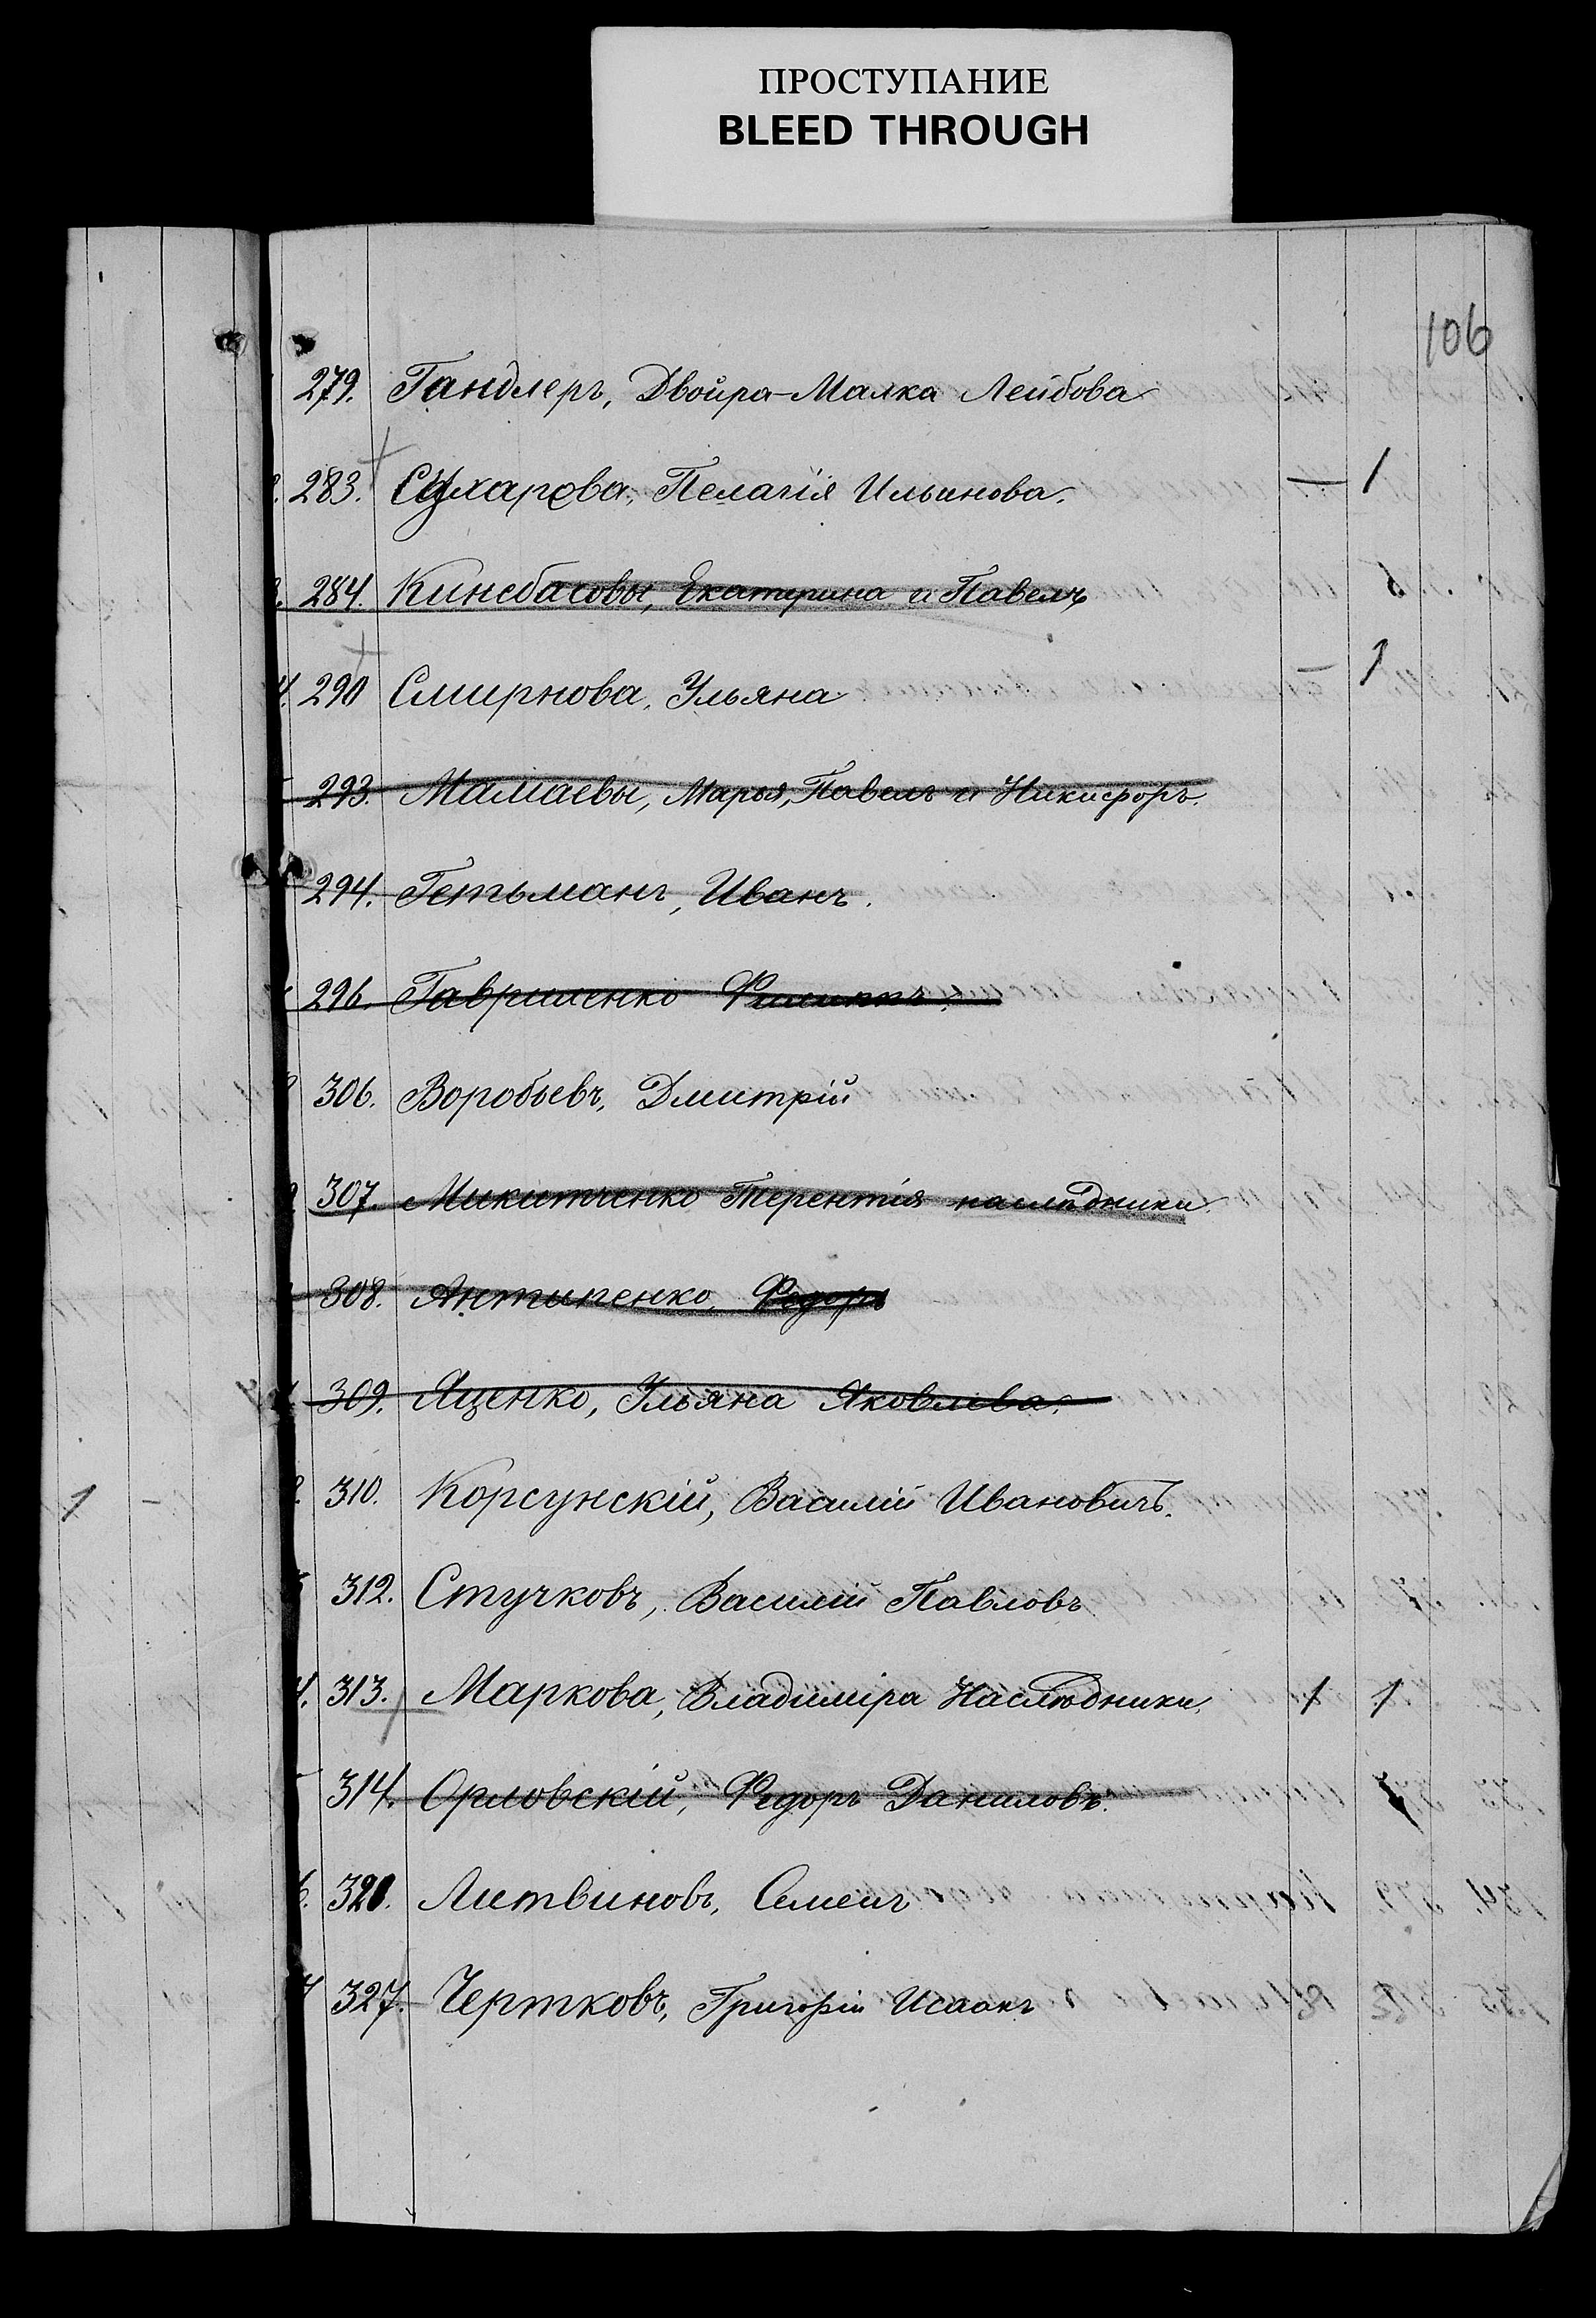 ПРОСТУПАНИЕ
BLEED THROUGH
106
279. Гандлеръ, Двойра-Малка Лейбова
283. Сухарева, Пелагія Ильинова. — 1
284. Кинсбасовы, Екатерина и Павелъ
290 Смирнова, Ульяна — 1
293. Мамаевы, Марья, Павелъ и Никифоръ.
294. Гетьманъ, Иванъ.
296. Гавриленко Филиппъ.
306. Воробьевъ, Дмитрій
307. Микитченко Терентія наслѣдники
308. Антипенко, Федоръ
309. Яценко, Ульяна Яковлева.
310. Корсунскій, Василій Ивановичъ.
312. Стучковъ, Василій Павловъ
313. Маркова, Владиміра Наслѣдники. 1 1
314. Орловскій, Федоръ Даниловъ.
320. Литвиновъ, Семенъ
327. Чертковъ, Григорій Исаакъ